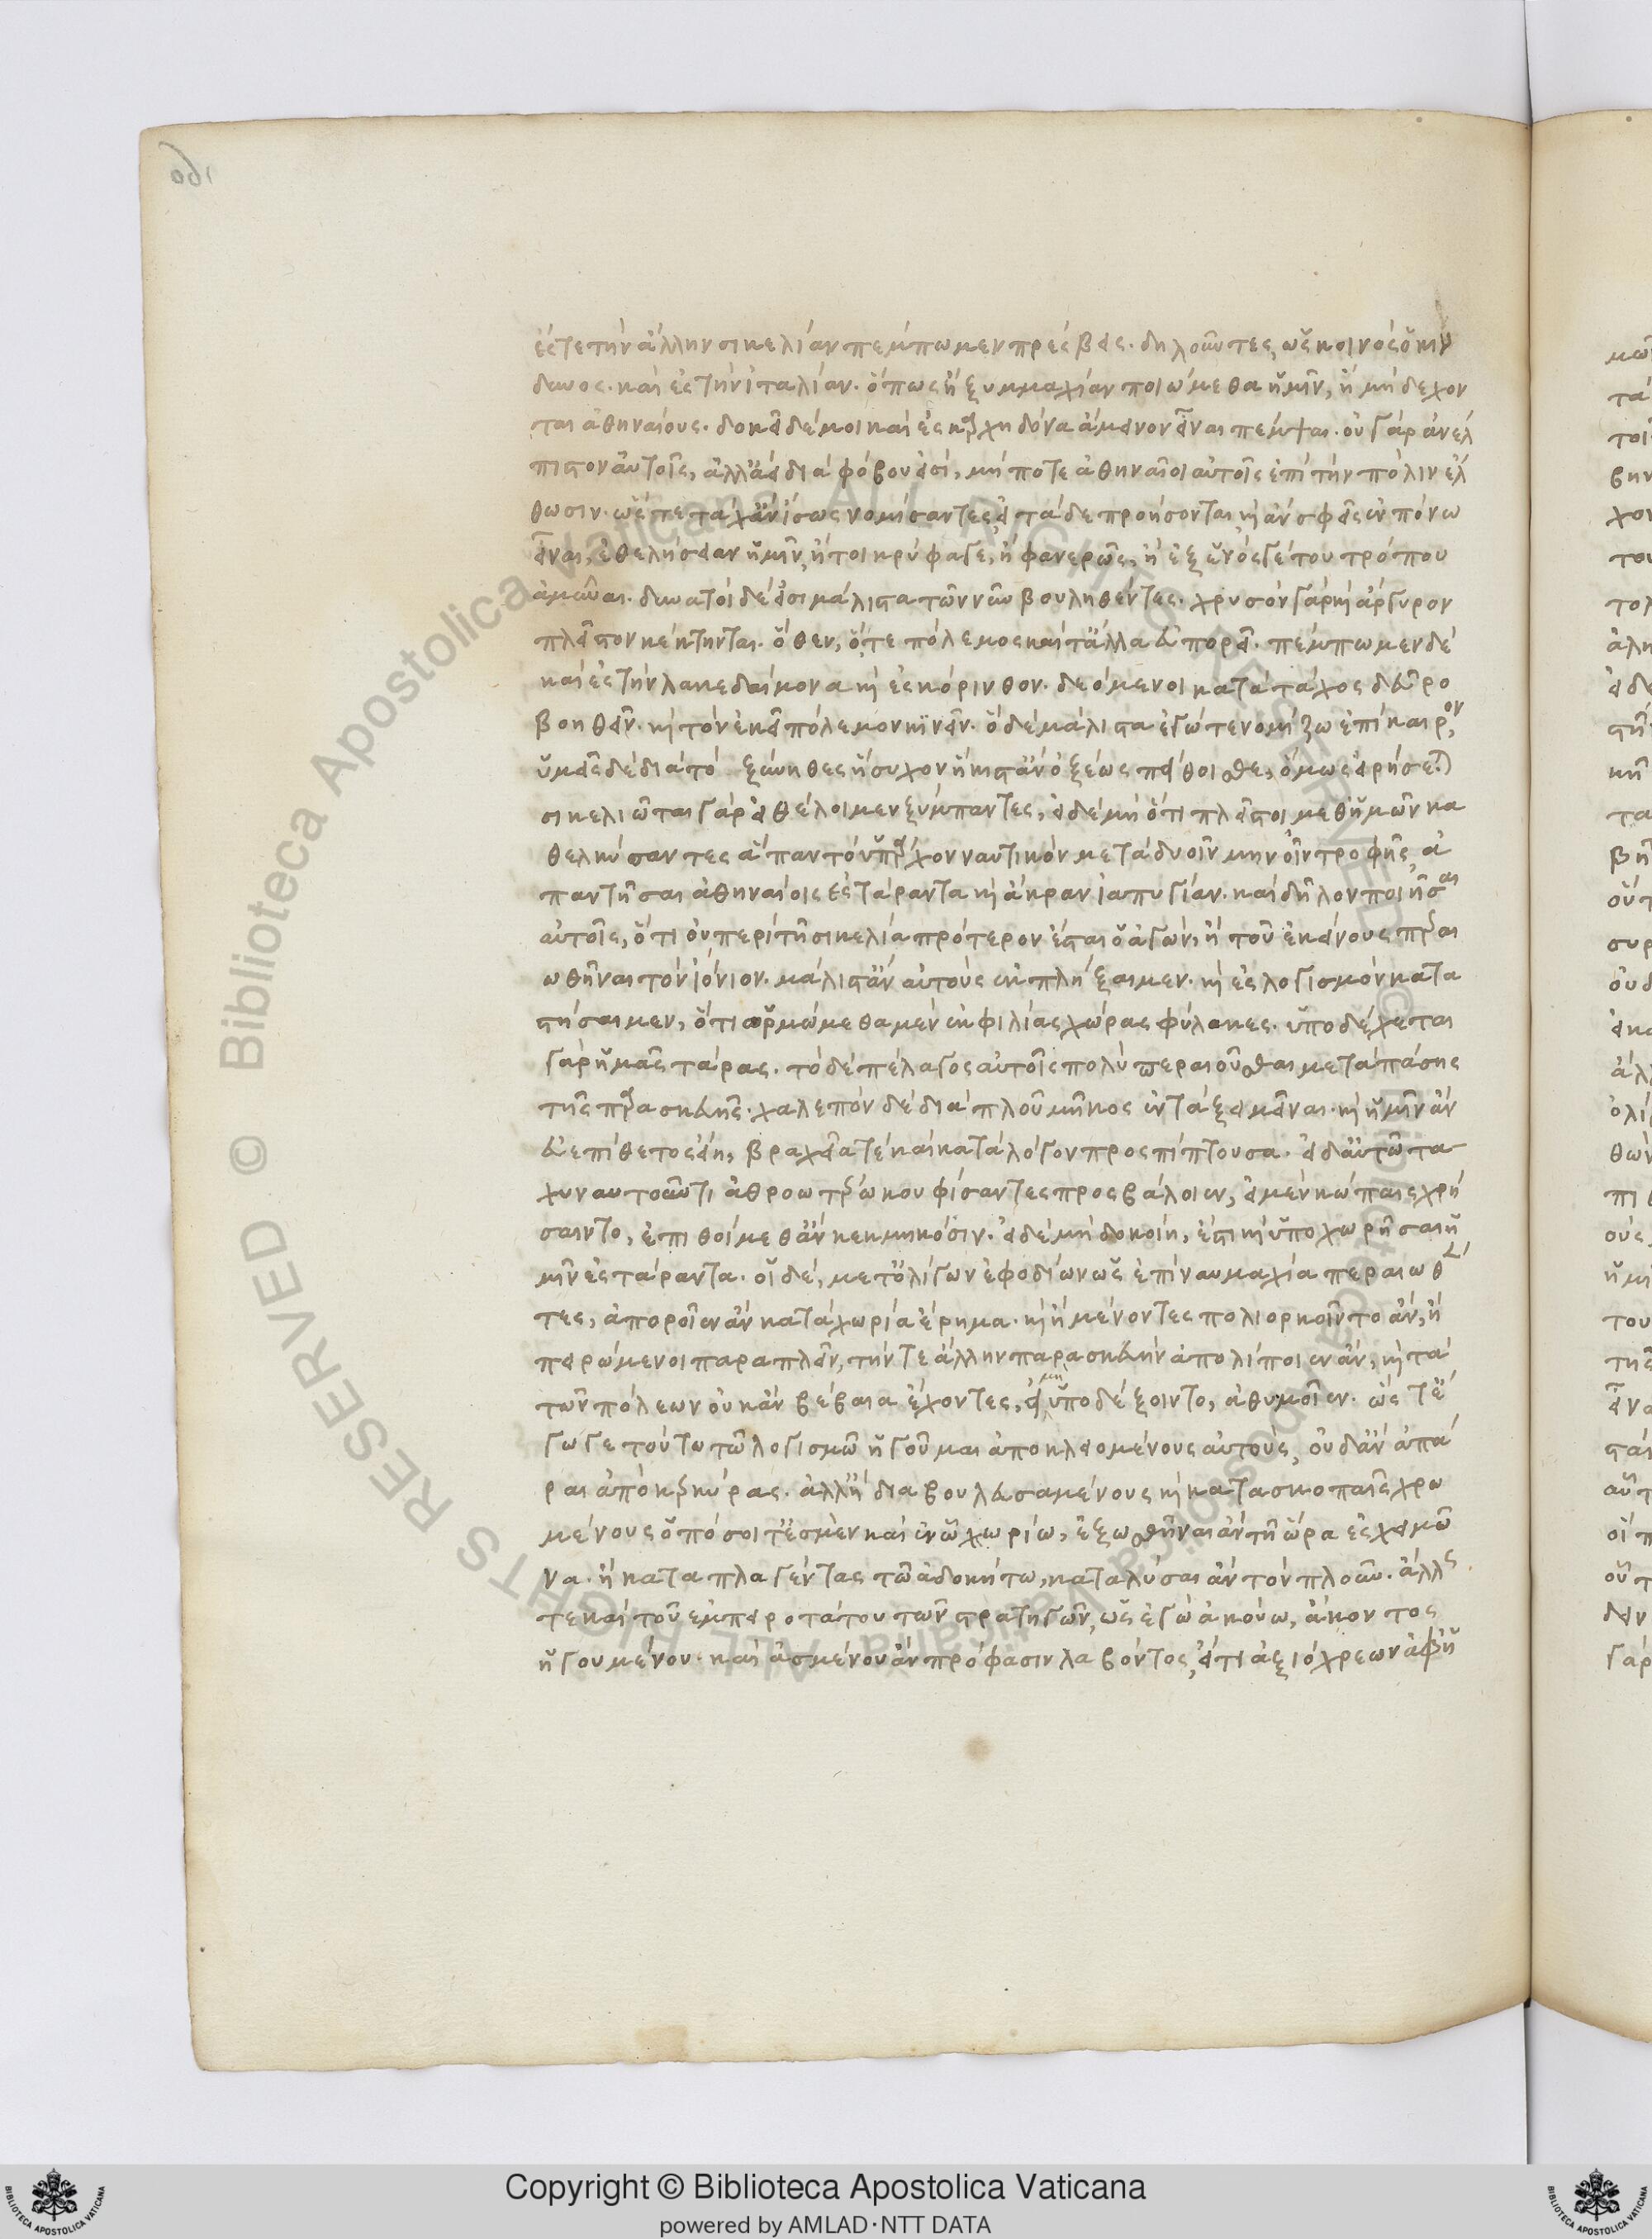 ἔς τε τὴν ἄλλην σικελίαν πέμπωμεν πρέσβεις. δηλοῦντες, ὡς κοινὸς ὁ κίν
δυνος. καὶ ἐς τὴν ἰταλίαν. ὅπως ἢ ξυμμαχίαν ποιώμεθα ἡμῖν, ἢ μὴ δέχον
ται ἀθηναίους. δοκεῖ δέ μοι καὶ ἐς καρχηδόνα ἄμεινον εἶναι πέμψαι. οὐ γὰρ ἀνέλ
πιστον αὐτοῖς, ἀλλ' ἀεὶ διὰ φόβου εἰσὶ, μή ποτε ἀθηναῖοι αὐτοῖς ἐπὶ τὴν πόλιν ἔλ
θωσιν. ὥστε τάχ' ἂν ἴσως νομίσαντες, εἰ τάδε προήσονται κἂν σφεῖς ἐν πόνω
εἶναι, ἐθελήσειαν ἡμῖν, ἤτοι κρύφα γε, ἢ φανερῶς, ἢ ἐξ ἑνός γέ του τρόπου
ἀμῦναι. δυνατοὶ δέ εἰσι μάλιστα τῶν νῦν βουληθέντες. χρυσὸν γὰρ καὶ ἄργυρον
πλεῖστον κέκτηνται. ὅθεν, ὅ τε πόλεμος καὶ τἄλλα εὐπορεῖ. πέμπωμεν δὲ
καὶ ἐς τὴν λακεδαίμονα καὶ ἐς κόρινθον. δεόμενοι κατὰ τάχος δεῦρο
βοηθεῖν. καὶ τὸν ἐκεῖ πόλεμον κινεῖν. ὃ δὲ μάλιστα ἐγώ τε νομίζω ἐπίκαιρον,
ὑμεῖς δὲ διὰ τὸ ξύνηθες ἥσυχον ἥκιστ' ἂν ὀξέως πείθοισθε, ὅμως εἰρήσεται
σικελιῶται γὰρ εἰ θέλοιμεν ξύμπαντες, εἰ δὲ μὴ ὅτι πλεῖστοι μεθ' ἡμῶν κα
θελκύσαντες ἅπαν τὸ ὑπάρχον ναυτικὸν μετὰ δυοῖν μηνοῖν τροφῆς ἀ
παντῆσαι ἀθηναίοις ἐς τάραντα καὶ ἄκραν ἰαπυγίαν. καὶ δῆλον ποιῆσαι
αὐτοῖς, ὅτι οὐ περὶ τῆ σικελία πρότερον ἔσται ὁ ἀγὼν, ἢ τοῦ ἐκείνους περαι
ωθῆναι τὸν ἰόνιον. μάλιστ' ἂν αὐτοὺς ἐκπλήξαιμεν. καὶ ἐς λογισμὸν κατα
στήσαιμεν, ὅτι ὁρμώμεθα μὲν ἐκ φιλίας χώρας φύλακες. ὑποδέχεται
γὰρ ἡμᾶς τάρας. τὸ δὲ πέλαγος αὐτοῖς πολὺ περαιοῦσθαι μετὰ πάσης
τῆς παρασκευῆς. χαλεπὸν δὲ διὰ πλοῦ μῆκος ἐν τάξει μεῖναι. καὶ ἡμῖν ἂν
εὐεπίθετος εἴη, βραχεῖά τε καὶ κατὰ λόγον προσπίπτουσα. εἰ δ' αὖ τῶ τα
χυναυτοῦντι ἀθροωτέρω κουφίσαντες προσβάλοιεν, εἰ μὲν κώπαις χρή
σαιντο, ἐπιθοίμεθ' ἂν κεκμηκόσιν. εἰ δὲ μὴ δοκοίη, ἔστι καὶ ὑποχωρῆσαι ἡ
μῖν ἐς τάραντα. οἱ δὲ, μετ' ὀλίγων ἐφοδίων ὡς ἐπὶ ναυμαχία περαιωθέν
τες, ἀποροῖεν ἂν κατὰ χωρία ἔρημα. καὶ ἢ μένοντες πολιορκοῖντο ἂν, ἢ
πειρώμενοι παραπλεῖν, τήν τε ἄλλην παρασκευὴν ἀπολίποιεν ἂν, καὶ τὰ
τῶν πόλεων οὐκ ἂν βέβαια ἔχοντες, εἰ μὴ ὑποδέξοιντο, ἀθυμοῖεν. ὥστ' ἔ
γωγε τούτω τῶ λογισμῶ ἡγοῦμαι ἀποκλειομένους αὐτοὺς, οὐδ' ἂν ἀπᾶ
ραι ἀπὸ κερκύρας. ἀλλ' ἢ διαβουλευσαμένους καὶ κατασκοπαῖς χρω
μένους ὁπόσοι τ' ἐσμὲν καὶ ἐν ὧ χωρίω, ἐξωσθῆναι ἂν τῆ ὥρα ἐς χειμῶ
να. ἢ καταπλαγέντας τῶ ἀδοκήτω, καταλῦσαι ἂν τὸν πλοῦν. ἄλλως
τε καὶ τοῦ ἐμπειροτάτου τῶν στρατηγῶν, ὡς ἐγὼ ἀκούω, ἄκοντος
ἡγουμένου. καὶ ἀσμένου ἂν πρόφασιν λαβόντος, εἴ τι ἀξιόχρεων ἀφ' ἡ
Copyright © Biblioteca Apostolica Vaticana
powered by AMLAD·NTT DATA